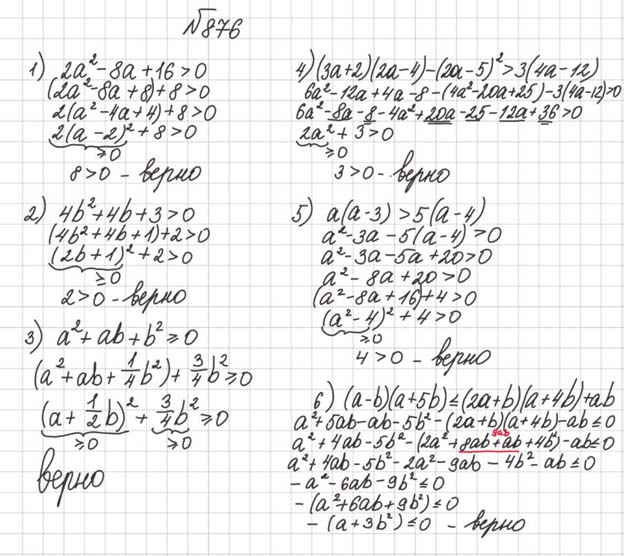 №876
1) 2a²-8a+16>0
(2a²-8a+8)+8>0
2(a²-4a+4)+8>0
2(a-2)²+8>0
≥0
8>0 - верно
2) 4b²+4b+3>0
(4b²+4b+1)+2>0
(2b+1)²+2>0
≥0
2>0 - верно
3) a²+ab+b²≥0
(a²+ab+1/4b²)+3/4b²≥0
(a+1/2b)²+3/4b²≥0
≥0 ≥0
верно
4) (3a+2)(2a-4)-(2a-5)²>3(4a-12)
6a²-12a+4a-8-(4a²-20a+25)-3(4a-12)>0
6a²-8a-8-4a²+20a-25-12a+36>0
2a²+3>0
≥0
3>0 - верно
5) a(a-3)>5(a-4)
a²-3a-5(a-4)>0
a²-3a-5a+20>0
a²-8a+20>0
(a²-8a+16)+4>0
(a²-4)²+4>0
≥0
4>0 - верно
6) (a-b)(a+5b)≤(2a+b)(a+4b)+ab
a²+5ab-ab-5b²-(2a+b)(a+4b)-ab≤0
9ab
a²+4ab-5b²-(2a²+8ab+ab+4b²)-ab≤0
a²+4ab-5b²-2a²-9ab-4b²-ab≤0
-a²-6ab-9b²≤0
-(a²+6ab+9b²)≤0
-(a+3b²)≤0 - верно